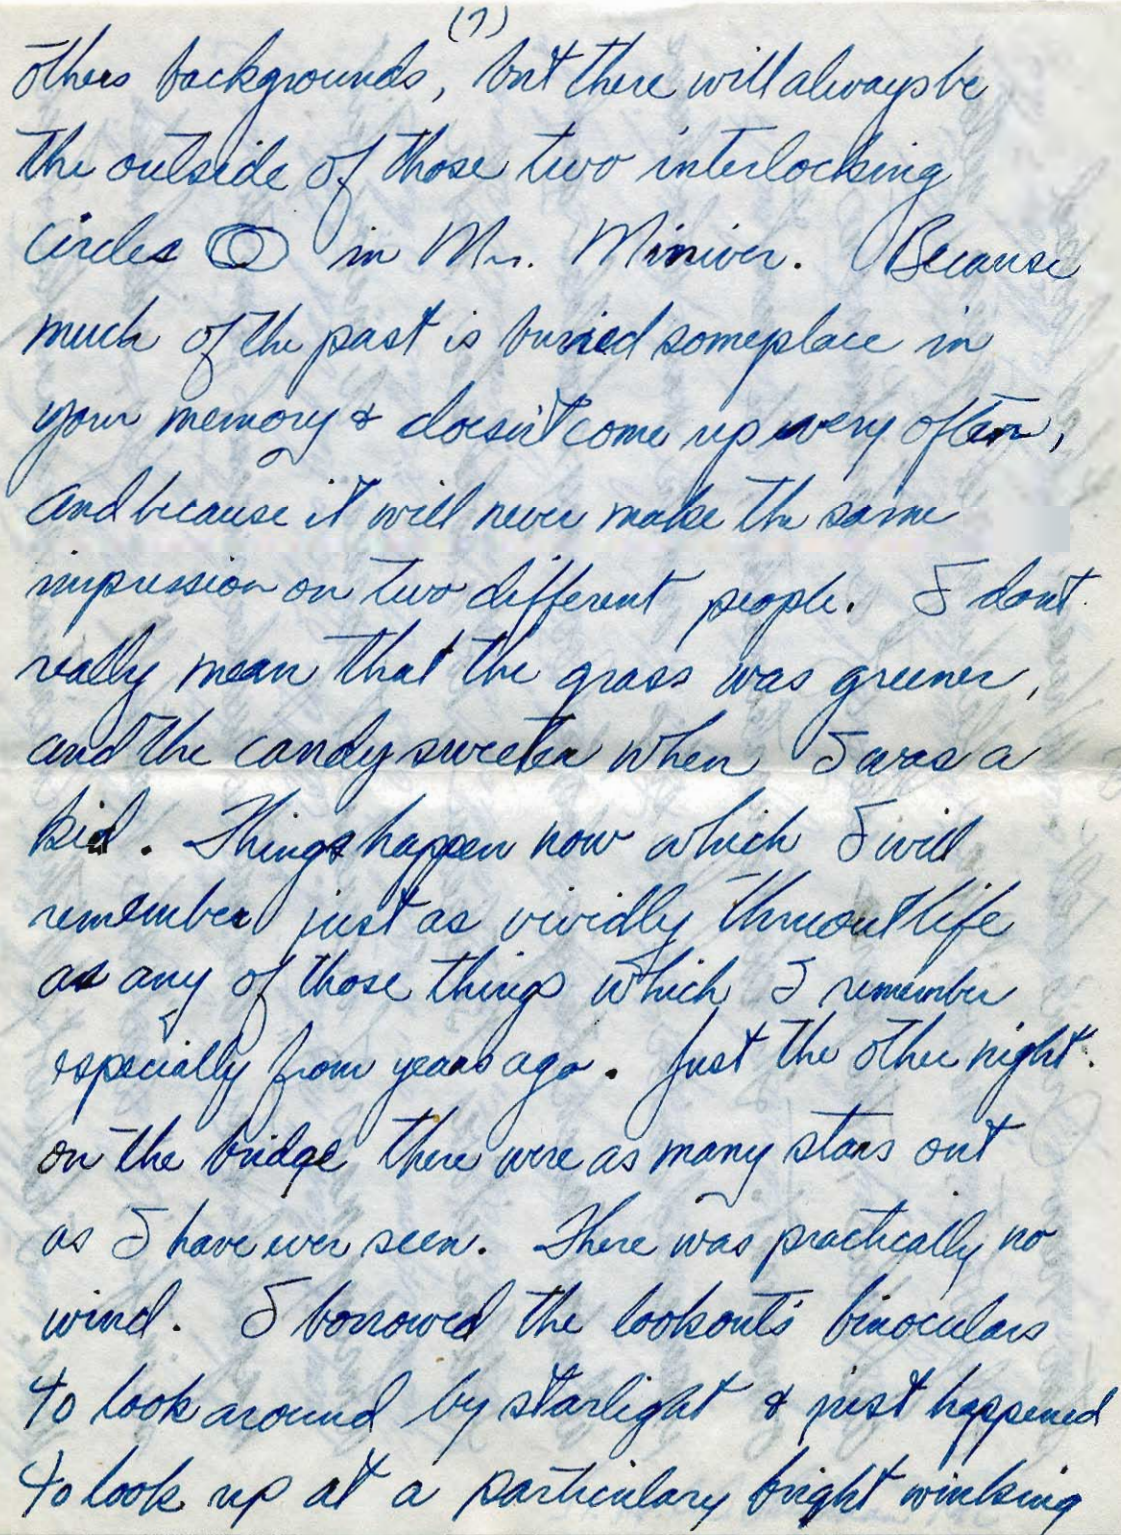 (7)
others backgrounds, but there will always be
the outside of those two interlocking
circles in Mrs. Miniver. Because
much of the past is buried someplace in
your memory & doesn't come up very often,
and because it will never make the same
impression on two different people. I don't
really mean that the grass was greener,
and the candy sweeter when I was a
kid. Things happen now which I will
remember just as vividly thruout life
as any of those things which I remember
especially from years ago. Just the other night
on the bridge there were as many stars out
as I have ever seen. There was practically no
wind. I borrowed the lookout's binoculars
to look around by starlight & just happened
to look up at a particulary bright winking